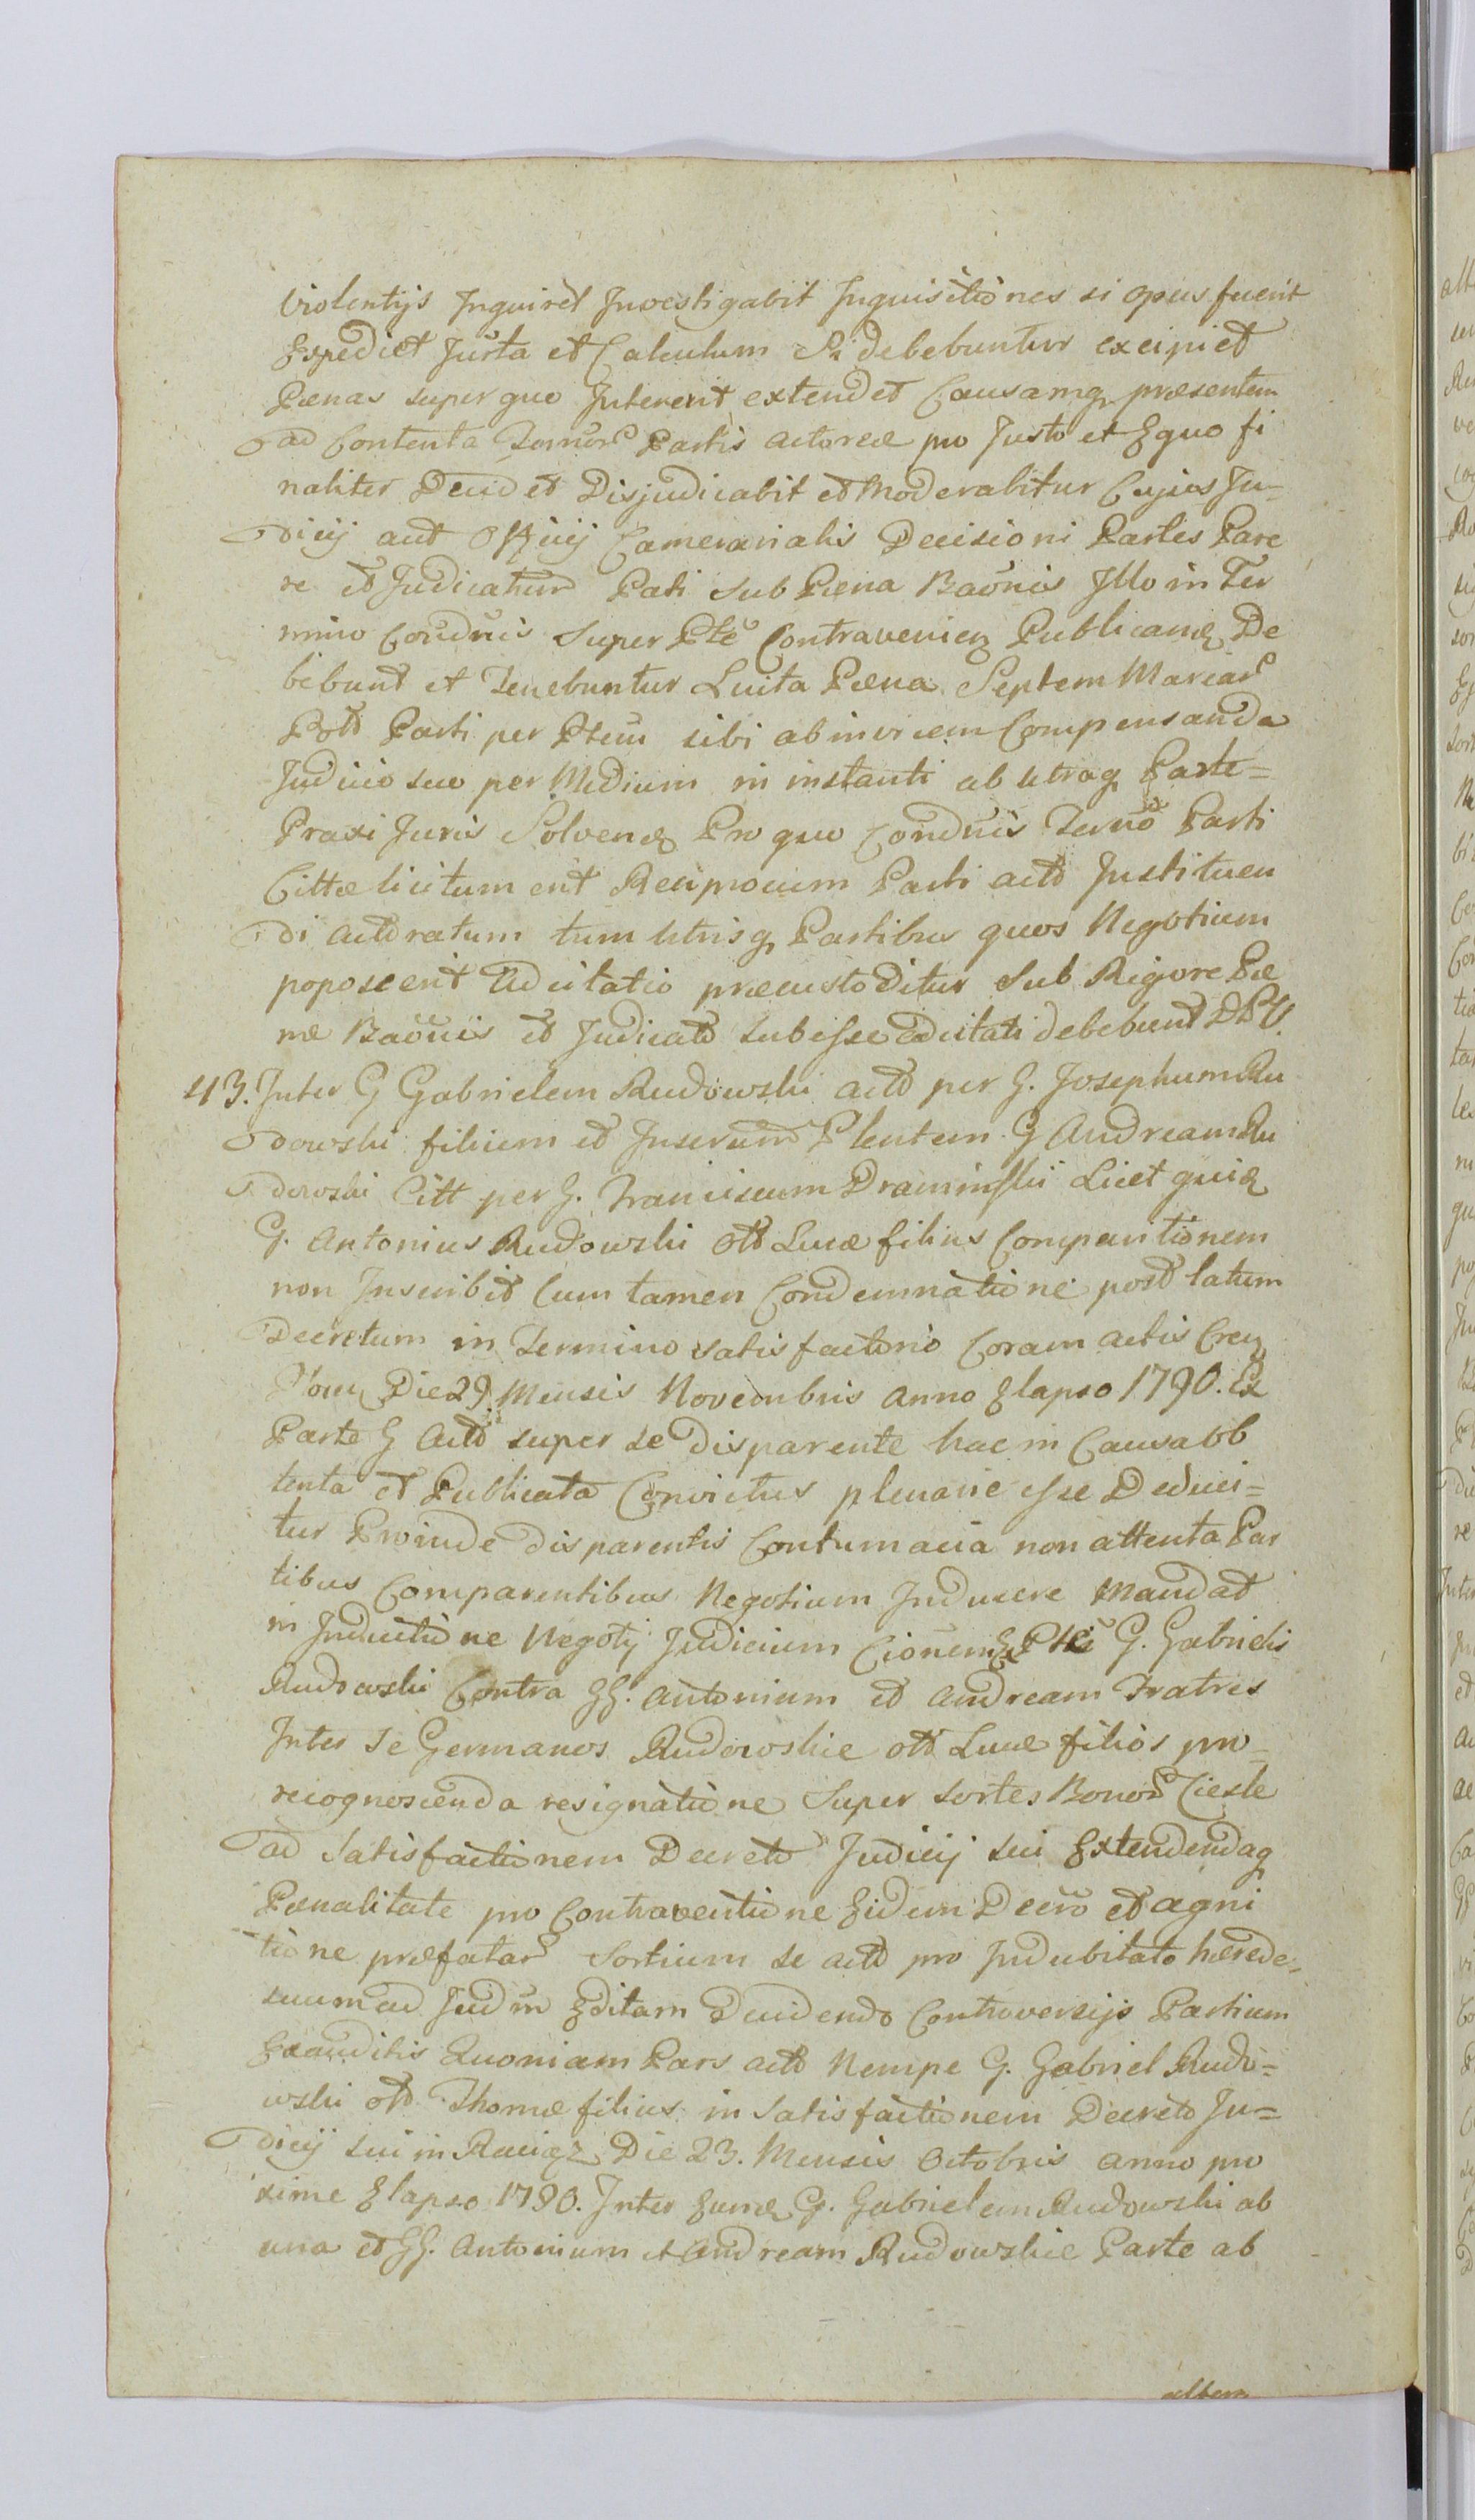 Violentijs Inquiret Investigabit Inquisitiones si opus fuerit
Expediet Jurta et Calculum Si debebuntur excipiet
Pænas super quo Intererit extendet Causamq præsentem
ad Contenta Termor Partis actoreæ pro Justo et Equo fi
naliter Decidet Disjudicabit et Moderabitur Cujus Ju=
dicij aut Officij Camerarialis Decisioni Partes Pare
re et Judicatum Pati sub Pæna Baonis Illo in Ter
mino Condnis Super Pte Contravenien Publicand De
bebunt et Tenebuntur Luita Pæna Septem Marcar
Potd Parti per Ptem sibi abinvicem Compensanda
Judicio suo per Medium in instanti ab utraq Parte=
Praxi Juris Solvend Pro quo Condnis Termo Parti
Cittæ licitum erit Reciprocum Parti actd Instituen
di actdratum tum utrisq Partibus quos Negotium
poposcerit Adcitatio præcustoditur Sub Rigore Pæ
næ Baonis et Judicatd subesse adcitati debebunt DPV.
43. Inter G Gabrielem Rudowski actd per G. Josephum Ru
dowski filium et Inserum Plentem G Andream Ru
dowski Citt per G. Franciscum Draminski Licet quid
G. Antonius Rudowski ottd Lucæ filius Comparitionem
non Inscribit Cum tamen Condemnatione post latum
Decretum in Termino satisfactorio Coram actis Cren
Plocen Die 29. Mensis Novembris anno Elapso 1790. Ex
Parte G Actd super se disparente hac in Causa ob
tenta et Publicata Convictus plenarie esse Deduci=
tur Proinde disparentis Contumacia non attenta Par
tibus Comparentibus Negotium Inducere Mandat
in Inductione Negotij Judicium Cionem Ex Pte G. Gabrielis
Rudowski Contra GG. Antonium et Andream Fratres
Inter se Germanos Rudowskie ottd Lucæ filios pro=
recognoscenda resignatione Super sortes Bonor Ciesle
ad Satisfactionem Decreto Judicij sui Extendendaq
Pænalitate pro Contraventione Eidem Decro et agni
tione præfatar Sortium se actd pro Indubitato hærede
suum ad Judm Editam Decidendo Controversijs Partium
Exauditis Quoniam Pars actd Nempe G. Gabriel Rudo=
wski ottd Thomæ filius in Satisfactionem Decreto Ju=
dicij sui in Raciąz Die 23. Mensis Octobris anno pro
xime Elapso 1790. Inter Eund G. Gabrielem Rudowski ab
una et GG. Antonium et Andream Rudowskie Parte ab
altera